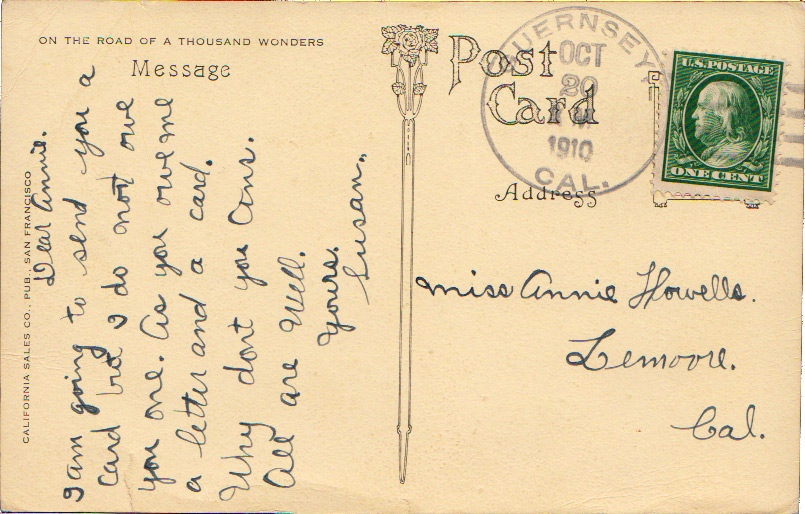 ON THE ROAD OF A THOUSAND WONDERS
Message
CALIFORNIA SALES CO., PUB., SAN FRANCISCO
Dear Annie.
I am going to send you a
card but I do not owe
you one. As you owe me
a letter and a card.
Why dont you Ans.
All are Well.
Yours.
Susan..
Post
Card
GUERNSEY
OCT
20
1910
CAL.
U.S. POSTAGE
ONE CENT
Address
Miss Annie Howells.
Lemoore.
Cal.